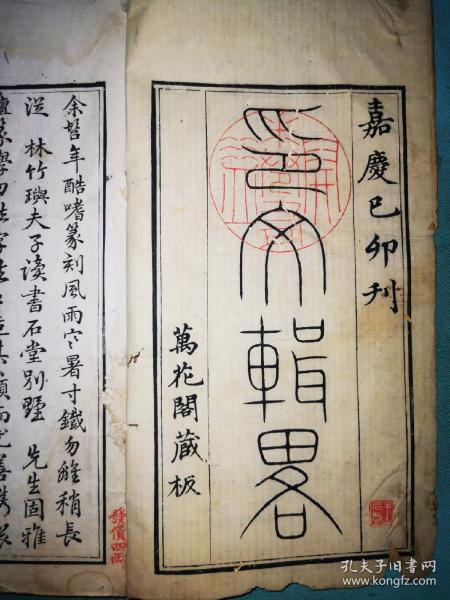 嘉慶己卯刊
印文輯畧
萬花閣藏板
余髫年酷嗜篆刻風雨寒暑寸鐵勿離稍長
從 林竹嶼夫子读書石堂別墅 先生固雅
發價四兩
孔夫子旧书网
www.kongfz.com